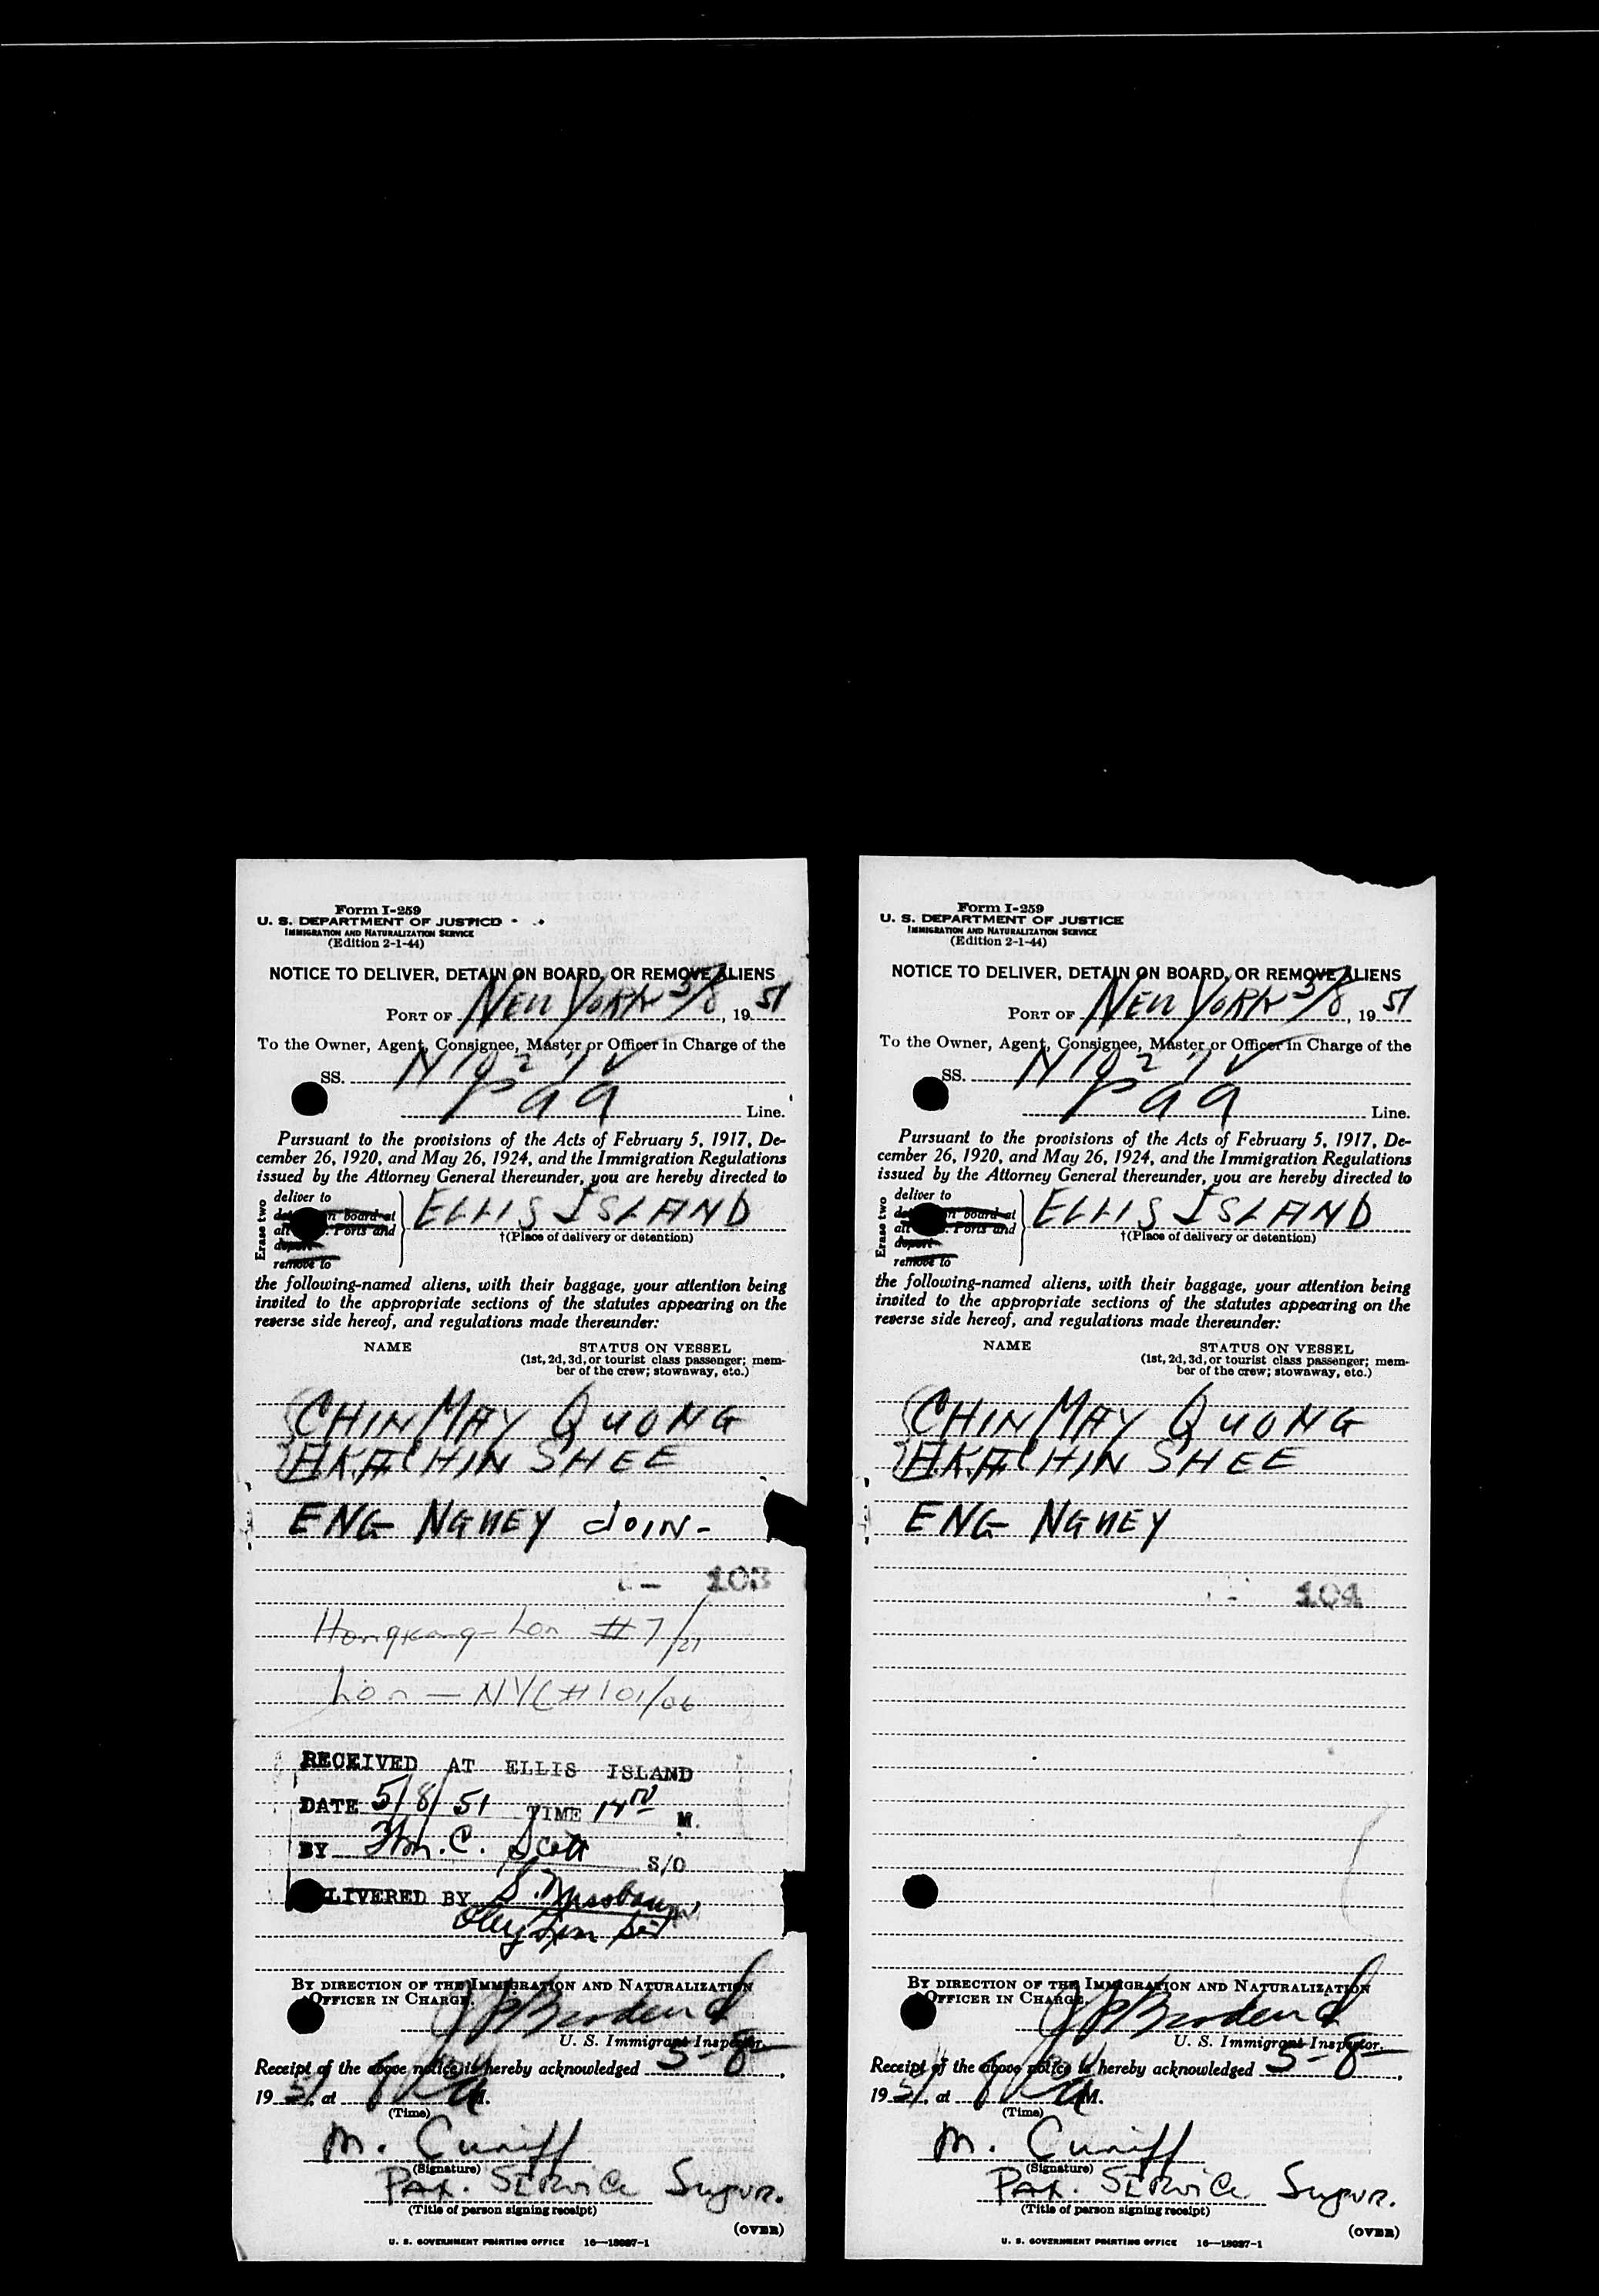 Form I-259
U. S. DEPARTMENT OF JUSTICE
IMMIGRATION AND NATURALIZATION SERVICE
(Edition 2-1-44)
NOTICE TO DELIVER, DETAIN ON BOARD, OR REMOVE ALIENS
PORT OF NEW YORK 5/8, 1951
To the Owner, Agent, Consignee, Master or Officer in Charge of the
SS. N 1027 V
Paa Line.
Pursuant to the provisions of the Acts of February 5, 1917, De-
cember 26, 1920, and May 26, 1924, and the Immigration Regulations
issued by the Attorney General thereunder, you are hereby directed to
Erase two
deliver to
n board at
Ports and
depart
remove to
ELLIS ISLAND
†(Place of delivery or detention)
the following-named aliens, with their baggage, your attention being
invited to the appropriate sections of the statutes appearing on the
reverse side hereof, and regulations made thereunder:
NAME STATUS ON VESSEL
(1st, 2d, 3d, or tourist class passenger; mem-
ber of the crew; stowaway, etc.)
CHIN MAY QUONG
AKA CHIN SHEE
ENG NGUEY doIN-
103
Hongkong-Lon #7/27
Lon — NYC #101/06
RECEIVED AT ELLIS ISLAND
DATE 5/8/51 TIME M.
BY Wm. C. Scott S/O
LIVERED BY S.
BY DIRECTION OF THE IMMIGRATION AND NATURALIZATION
OFFICER IN CHARGE.
U. S. Immigrant Inspector.
Receipt of the above notice is hereby acknowledged 5-8,
1951, at M.
(Time)
M. Cuniff
(Signature)
PAX. SERVICE Supvr.
(Title of person signing receipt)
(OVER)
U. S. GOVERNMENT PRINTING OFFICE 16—13087-1
Form I-259
U. S. DEPARTMENT OF JUSTICE
IMMIGRATION AND NATURALIZATION SERVICE
(Edition 2-1-44)
NOTICE TO DELIVER, DETAIN ON BOARD, OR REMOVE ALIENS
PORT OF NEW YORK 5/8, 1951
To the Owner, Agent, Consignee, Master or Officer in Charge of the
SS. N 1027 V
Paa Line.
Pursuant to the provisions of the Acts of February 5, 1917, De-
cember 26, 1920, and May 26, 1924, and the Immigration Regulations
issued by the Attorney General thereunder, you are hereby directed to
Erase two
deliver to
n board at
Ports and
depart
remove to
ELLIS ISLAND
†(Place of delivery or detention)
the following-named aliens, with their baggage, your attention being
invited to the appropriate sections of the statutes appearing on the
reverse side hereof, and regulations made thereunder:
NAME STATUS ON VESSEL
(1st, 2d, 3d, or tourist class passenger; mem-
ber of the crew; stowaway, etc.)
CHIN MAY QUONG
AKA CHIN SHEE
ENG NGUEY
104
BY DIRECTION OF THE IMMIGRATION AND NATURALIZATION
OFFICER IN CHARGE
U. S. Immigrant Inspector.
Receipt of the above notice is hereby acknowledged 5-8,
1951, at M.
(Time)
M. Cuniff
(Signature)
PAX. SERVICE Supvr.
(Title of person signing receipt)
(OVER)
U. S. GOVERNMENT PRINTING OFFICE 16—13087-1